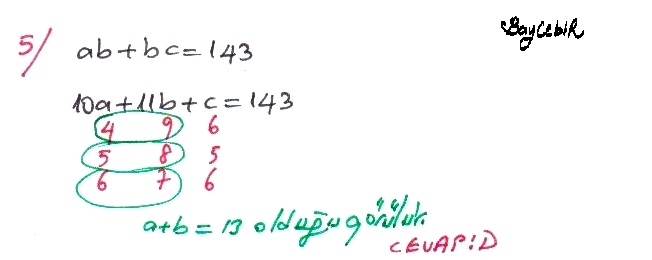 SayCebiR
5/ ab+bc=143
10a+11b+c=143
4 9 6
5 8 5
6 7 6
a+b=13 olduğu görülür.
CEVAP:D